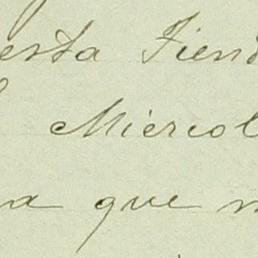 esta Tiend
Miércol
a que n